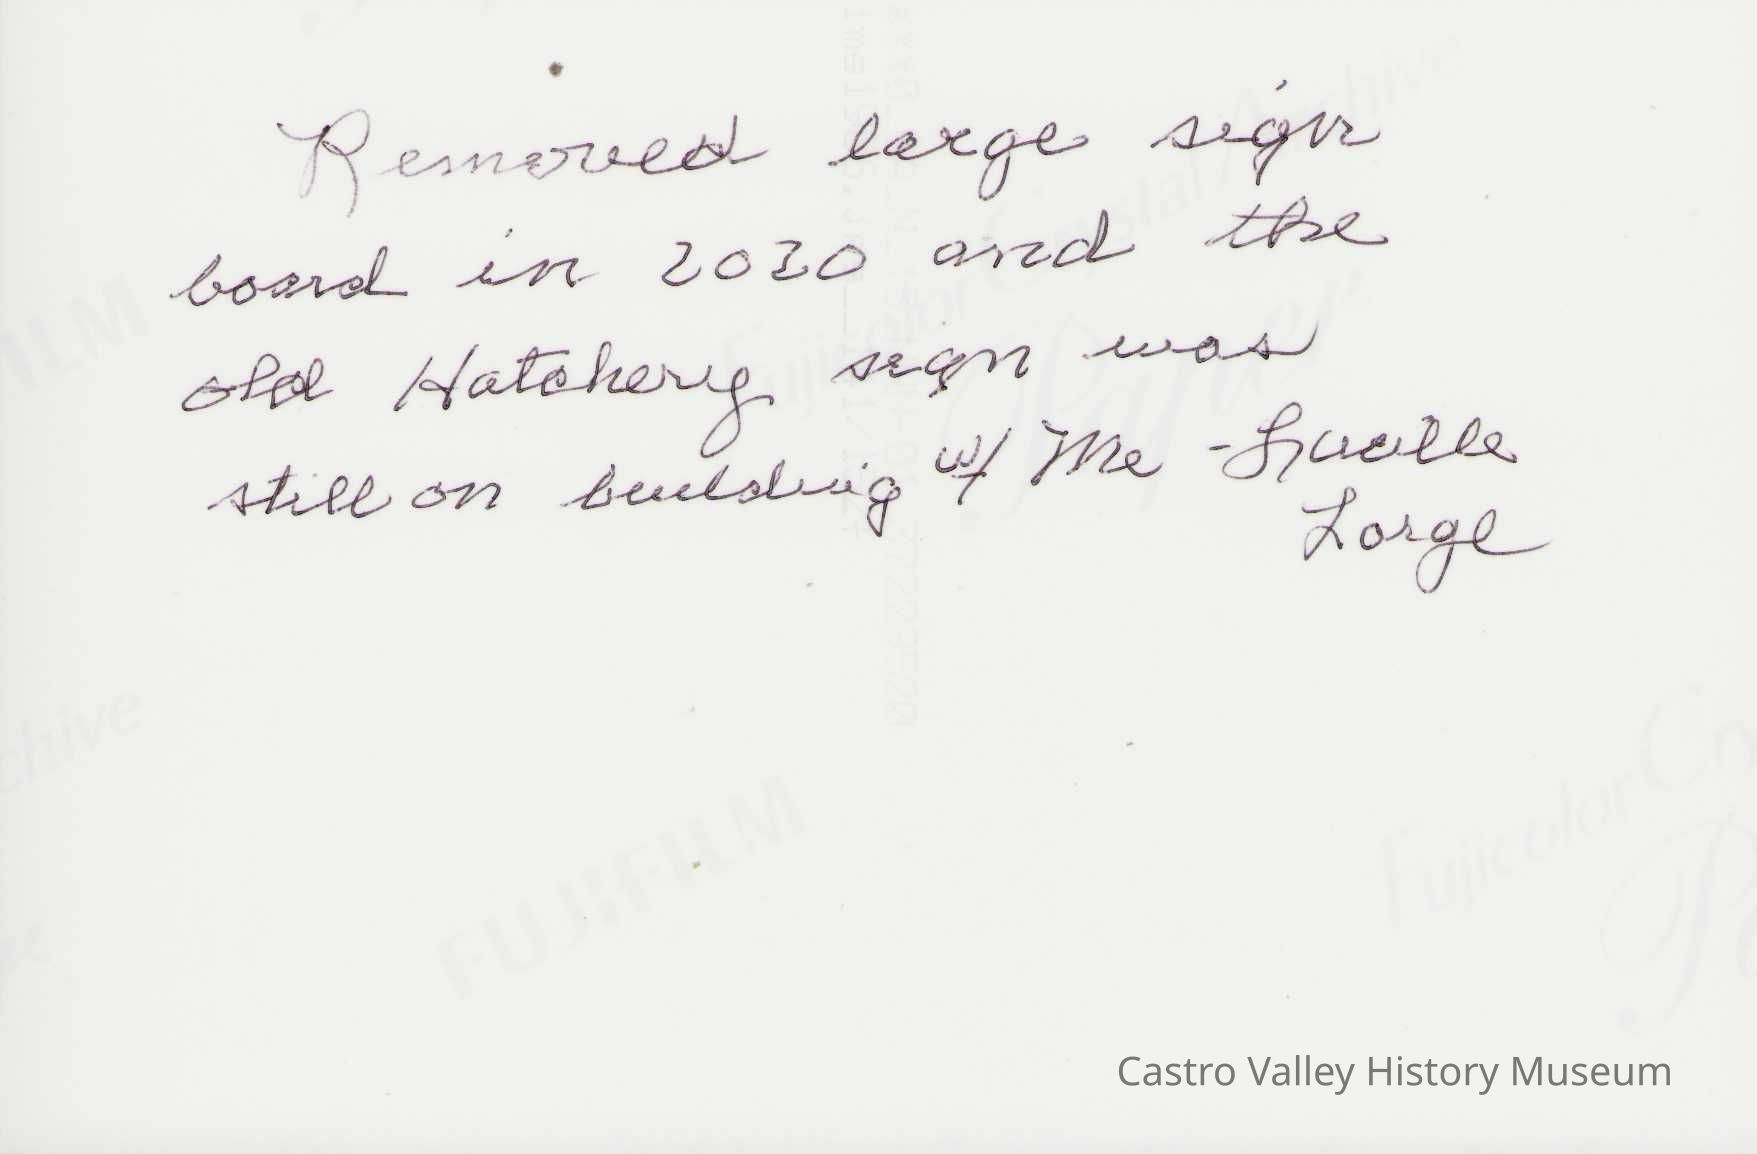 Removed large sign
board in 2010 and the
old Hatchery sign was
still on building w/ Me - Lucille
Lorge
FUJIFILM
Castro Valley History Museum